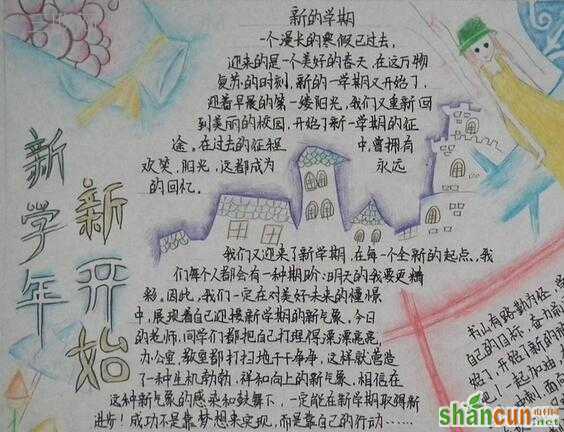 新学年
新开始
新的学期
一个漫长的寒假已过去,
迎来的是一个美好的春天,在这万物
复苏的时刻,新的一学期又开始了,
迎着早晨的第一缕阳光,我们又重新回
到美丽的校园,开始了新一学期的征
途。在过去的征程中,曾拥有
欢笑,阳光,这都成为永远
的回忆。
我们又迎来了新学期,在每一个全新的起点,我
们每个人都会有一种期盼:明天的我要更精
彩。因此,我们一定在对美好未来的憧憬
中,展现着自己迎接新学期的新气象。今日
的老师,同学们都把自己打理得漂漂亮亮,
办公室,教室都打扫地干干净净,这样就营造
了一种生机勃勃,祥和向上的新气象,相信在
这种新气象的感染和鼓舞下,一定能在新学期取得新
进步!成功不是靠梦想来实现,而是靠自己的行动……
书山有路勤为径,学
自己的目标,奋力前
始了,开始了新的
吧!一起加油,
制,面向
shancun
山村网
.net